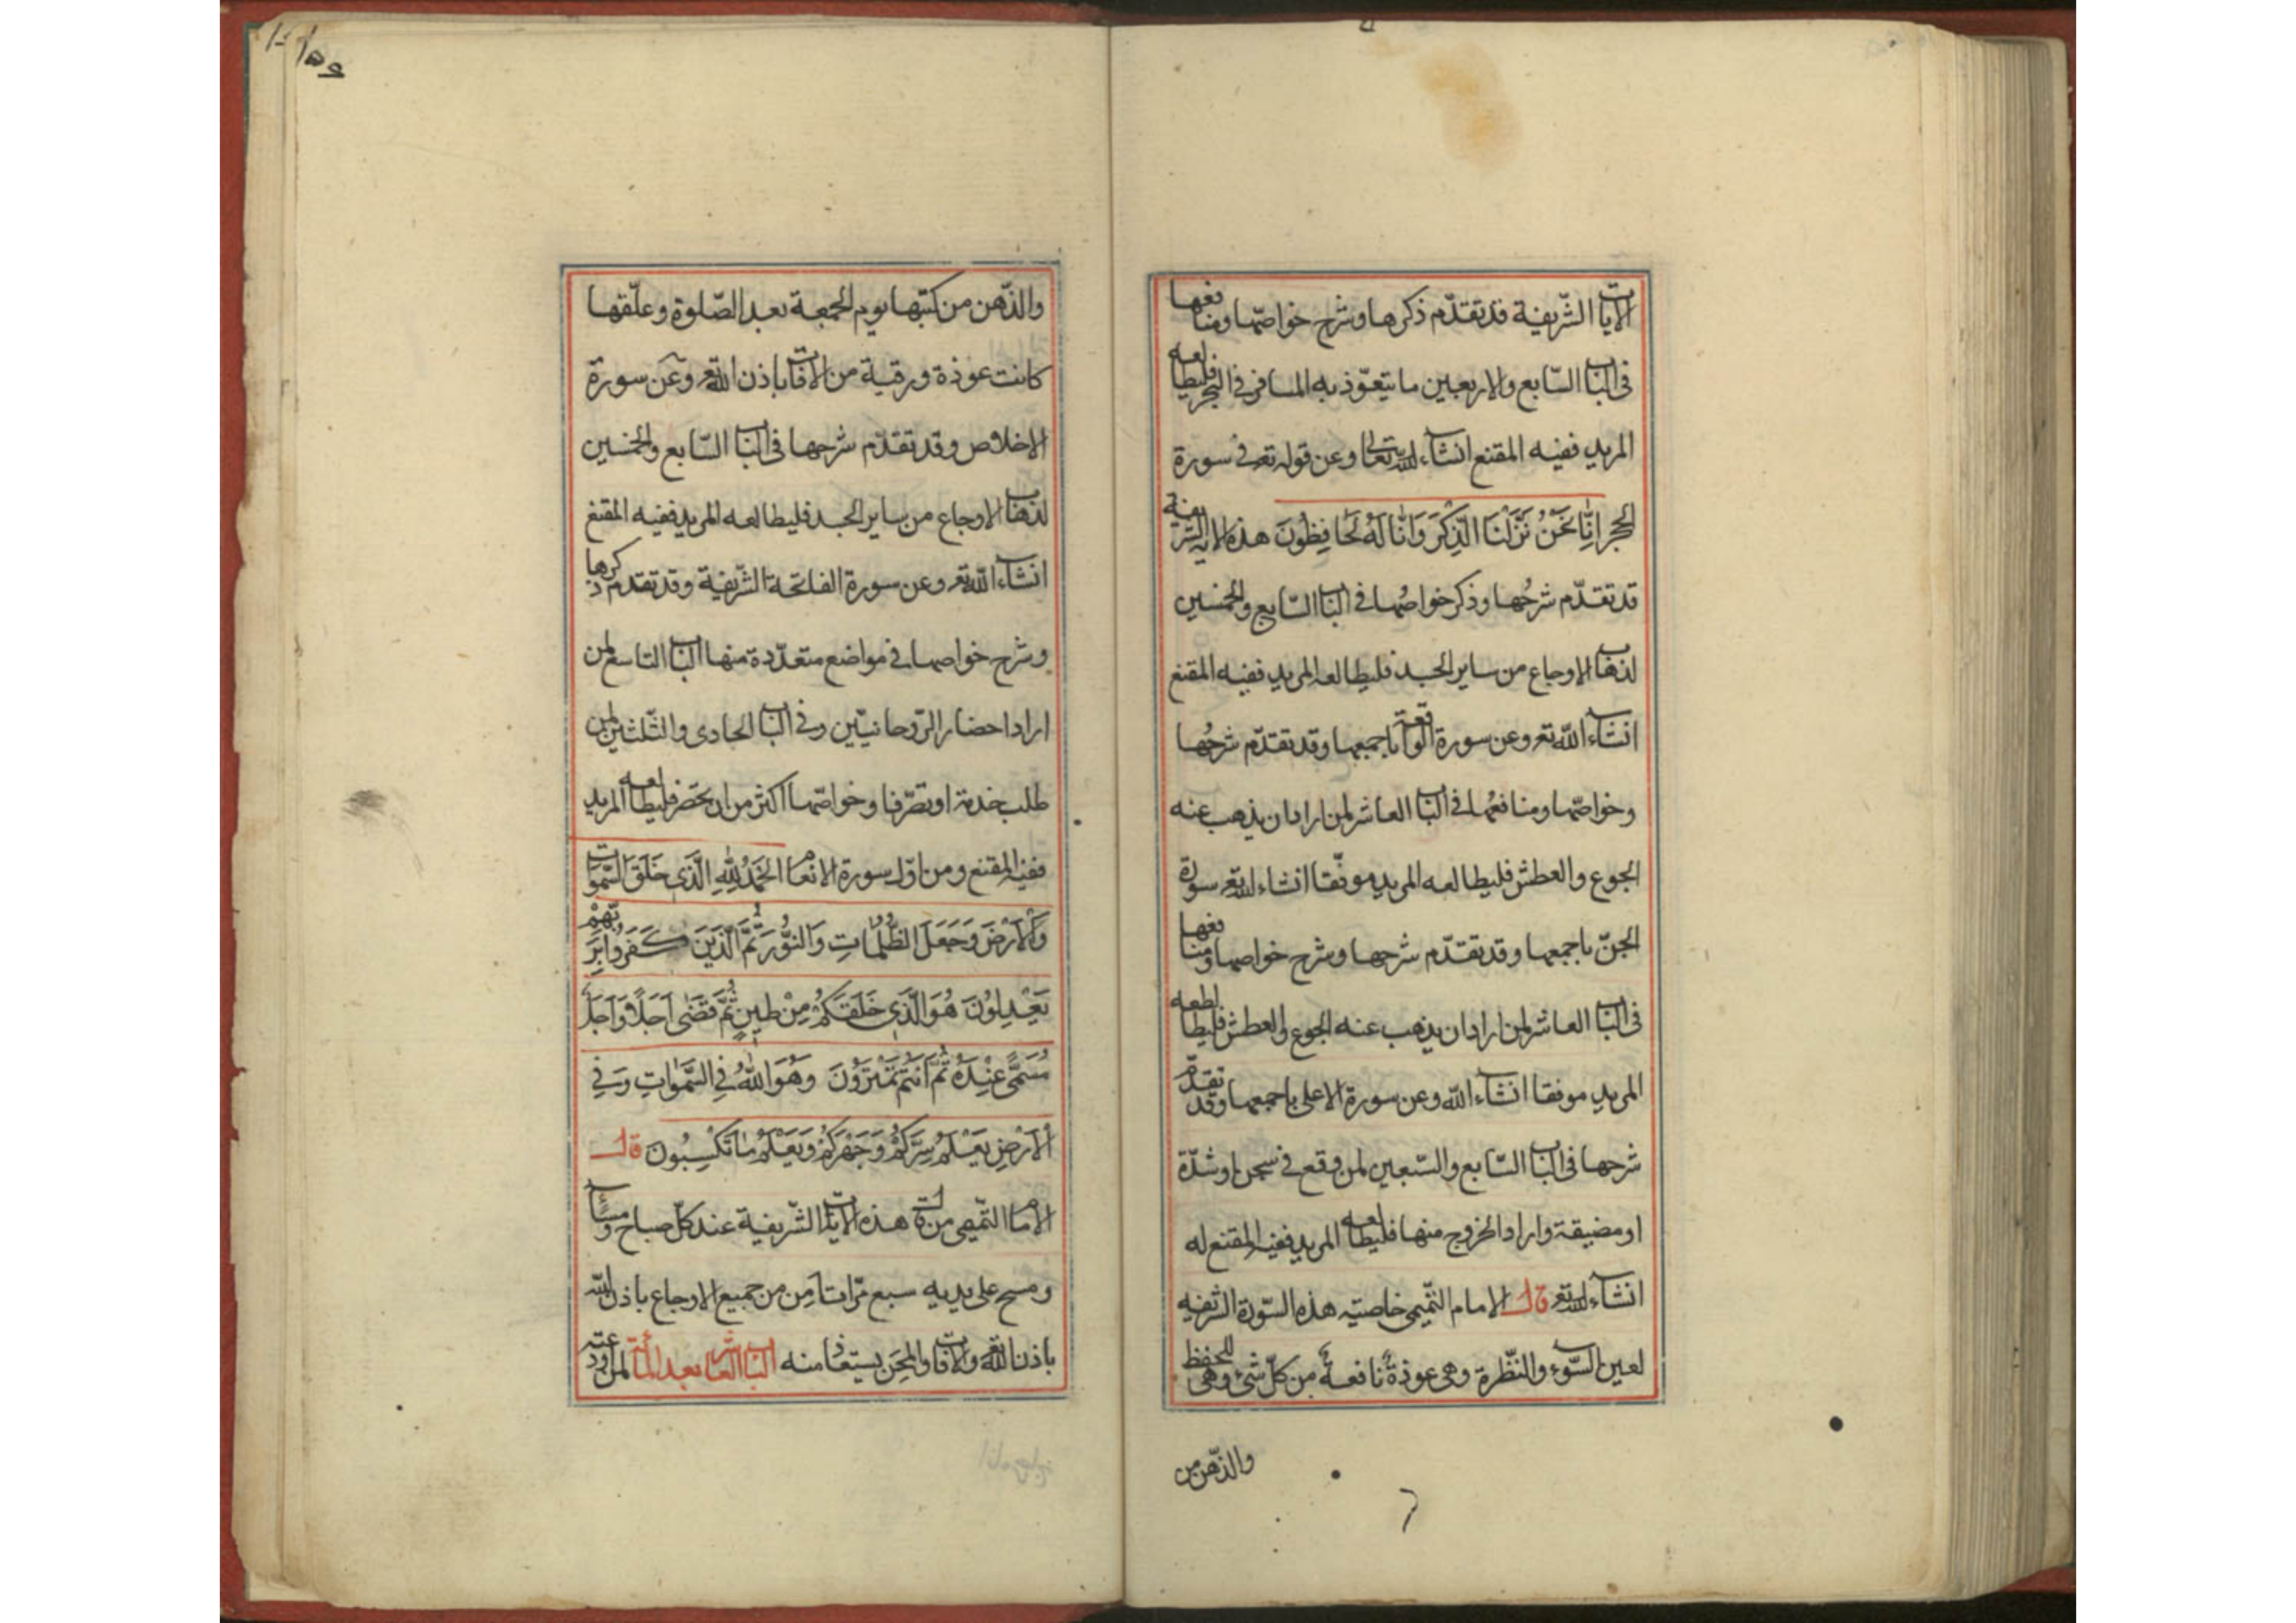 الايات الشّريفة قد تقدّم ذكرها وشرح خواصّها ومنافعها
فى الباب السّابع والاربعين ما يتعوّذ به المسافر فى البحر فليطالعه
المريد ففيه المقنع انشاء الله تعالى وعن قوله تع فى سورة
الحجر اِنّا نَحْنُ نَزَّلْنَا الذِّكْرَ وَاِنّا لَهُ لَحَافِظُونَ هذه الاية الشريفة
قد تقدّم شرحُها وذكر خواصّها فى الباب السّابع والخمسين
لذهاب الاوجاع من ساير الجسد فليطالعه المريد ففيه المقنع
انشاء الله تع وعن سورة الواقعة باجمعها وقد تقدّم شرحُها
وخواصّها ومنافعُها فى الباب العاشر لمن اراد ان يذهب عنه
الجوع والعطش فليطالعه المريد موفّقا انشاء الله تع سورة
الجنّ باجمعها وقد تقدّم شرحها وشرح خواصها ومنافعها
فى الباب العاشر لمن اراد ان يذهب عنه الجوع والعطش فليطالعه
المريد موفقا انشاء الله وعن سورة الاعلى باجمعها وقد تقدّم
شرحها فى الباب السّابع والسّبعين لمن وقع فى سجن او شدّة
او مضيقة واراد الخروج منها فليطالعه المريد ففيه المقنع له
انشاء الله تع قال الامام التّميمى خاصيته هذه السّورة الشريفه
لعين السّوء والنّظرة وهى عوذةٌ نافعةٌ من كلّ شىء وهى للحفظ
والذّهن من
والذّهن من كتبها يوم الجمعة بعد الصّلوة وعلّقها
كانت عوذة ورقية من الافات باذن الله تع وعن سورة
الاخلاص وقد تقدّم شرحها فى الباب السّابع والخمسين
لذهاب الاوجاع من ساير الجسد فليطالعه المريد ففيه المقنع
انشاء الله تع وعن سورة الفاتحة الشّريفة وقد تقدم ذكرها
وشرح خواصها فى مواضع متعدّدة منها الباب التاسع لمن
اراد احضار الرّوحانيّين وفى الباب الحادى والثّلثين لمن
طلب خدمة او تصرّفا وخواصّها اكثر من ان تحصر فليطالعه المريد
ففيه المقنع ومن اوّل سورة الانعام الحَمْدُ لِلّهِ الَّذى خَلَقَ السَّمَوات
وَالاَرْضَ وَجَعَلَ الظُّلُمَاتِ وَالنُّورَ ثُمَّ الَّذينَ كَفَرُوا بِرَبِّهِمْ
يَعْدِلُونَ هُوَ الَّذى خَلَقَكُمْ مِنْ طينٍ ثُمَّ قَضَى اَجَلًا وَاَجَلٌ
مُسَمًّى عِنْدَهُ ثُمَّ اَنْتُمْ تَمْتَرُونَ وَهُوَ اللّهُ فِى السَّمَوَاتِ وَفِى
الاَرْضِ يَعْلَمُ سِرَّكُمْ وَجَهْرَكُمْ وَيَعْلَمُ مَا تَكْسِبُون قال
الامام التّميمى من قرأ هذه الايات الشّريفة عند كلّ صباح ومساء
ومسح على يديه سبع مرّات اَمِن من جميع الاوجاع باذن الله
باذن الله تع والافات والمِحَن يستعاذ منه الباب العاشر بعد المائة لمن اودعته